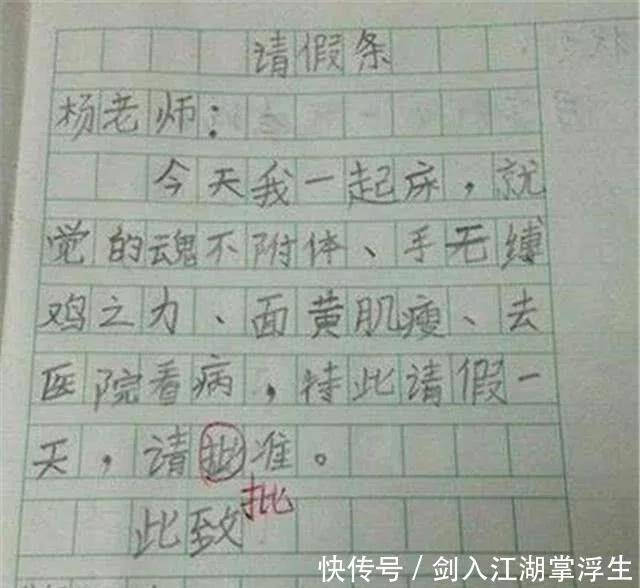 请假条
杨老师：
今天我一起床，就
觉的魂不附体、手无缚
鸡之力、面黄肌瘦、去
医院看病，特此请假一
天，请批准。
批
此致
快传号 / 剑入江湖掌浮生